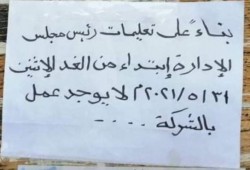 بناءً على تعليمات رئيس مجلس
الإدارة إبتداء من الغد الإثنين
٢٠٢١/٥/٣١م لا يوجد عمل
بالشركة .....